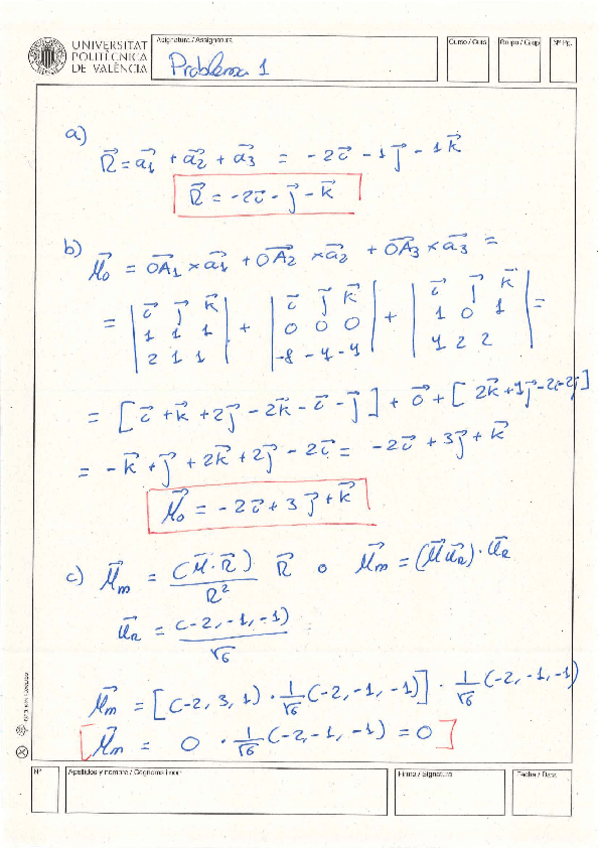 UNIVERSITAT
POLITÈCNICA
DE VALÈNCIA
Asignatura / Assignatura
Problema 1
Curso / Curs
Grupo / Grup
Nº Pg.
a)
R⃗ = a⃗1 + a⃗2 + a⃗3 = -2i⃗ - 1j⃗ - 1k⃗
R⃗ = -2i⃗ - j⃗ - k⃗
b) M⃗o = OA⃗1 × a⃗1 + OA⃗2 × a⃗2 + OA⃗3 × a⃗3 =
= | i⃗ j⃗ k⃗ | + | i⃗ j⃗ k⃗ | + | i⃗ j⃗ k⃗ | =
| 1 1 1 | | 0 0 0 | | 1 0 1 |
| 2 1 1 | | -8 -4 -4 | | 4 2 2 |
= [i⃗ + k⃗ + 2j⃗ - 2k⃗ - i⃗ - j⃗] + 0⃗ + [2k⃗ + 4j⃗ - 2i⃗ - 2j⃗]
= -k⃗ + j⃗ + 2k⃗ + 2j⃗ - 2i⃗ = -2i⃗ + 3j⃗ + k⃗
M⃗o = -2i⃗ + 3j⃗ + k⃗
c) M⃗m = (M⃗·R⃗)/R² R⃗ o M⃗m = (M⃗ u⃗R)·u⃗R
u⃗R = (-2, -1, -1)/√6
M⃗m = [(-2, 3, 1) · 1/√6 (-2, -1, -1)] · 1/√6 (-2, -1, -1)
M⃗m = 0 · 1/√6 (-2, -1, -1) = 0
Nº
Apellidos y nombre / Cognoms i nom
Firma / Signatura
Fecha / Data